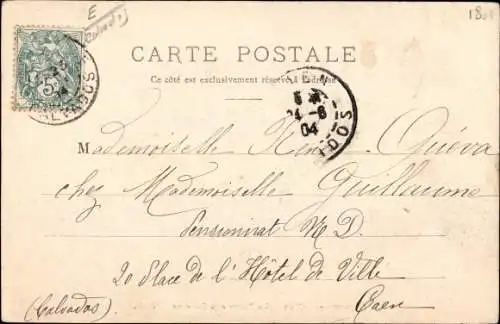 E
Calvados
18
CARTE POSTALE
Ce côté est exclusivement réservé à l'adresse
5
CALVADOS
CAEN
24-6
04
Mademoiselle Guéva
chez Mademoiselle Guillaume
Pensionnat N D.
20 Place de l'Hôtel de Ville
(Calvados) Caen